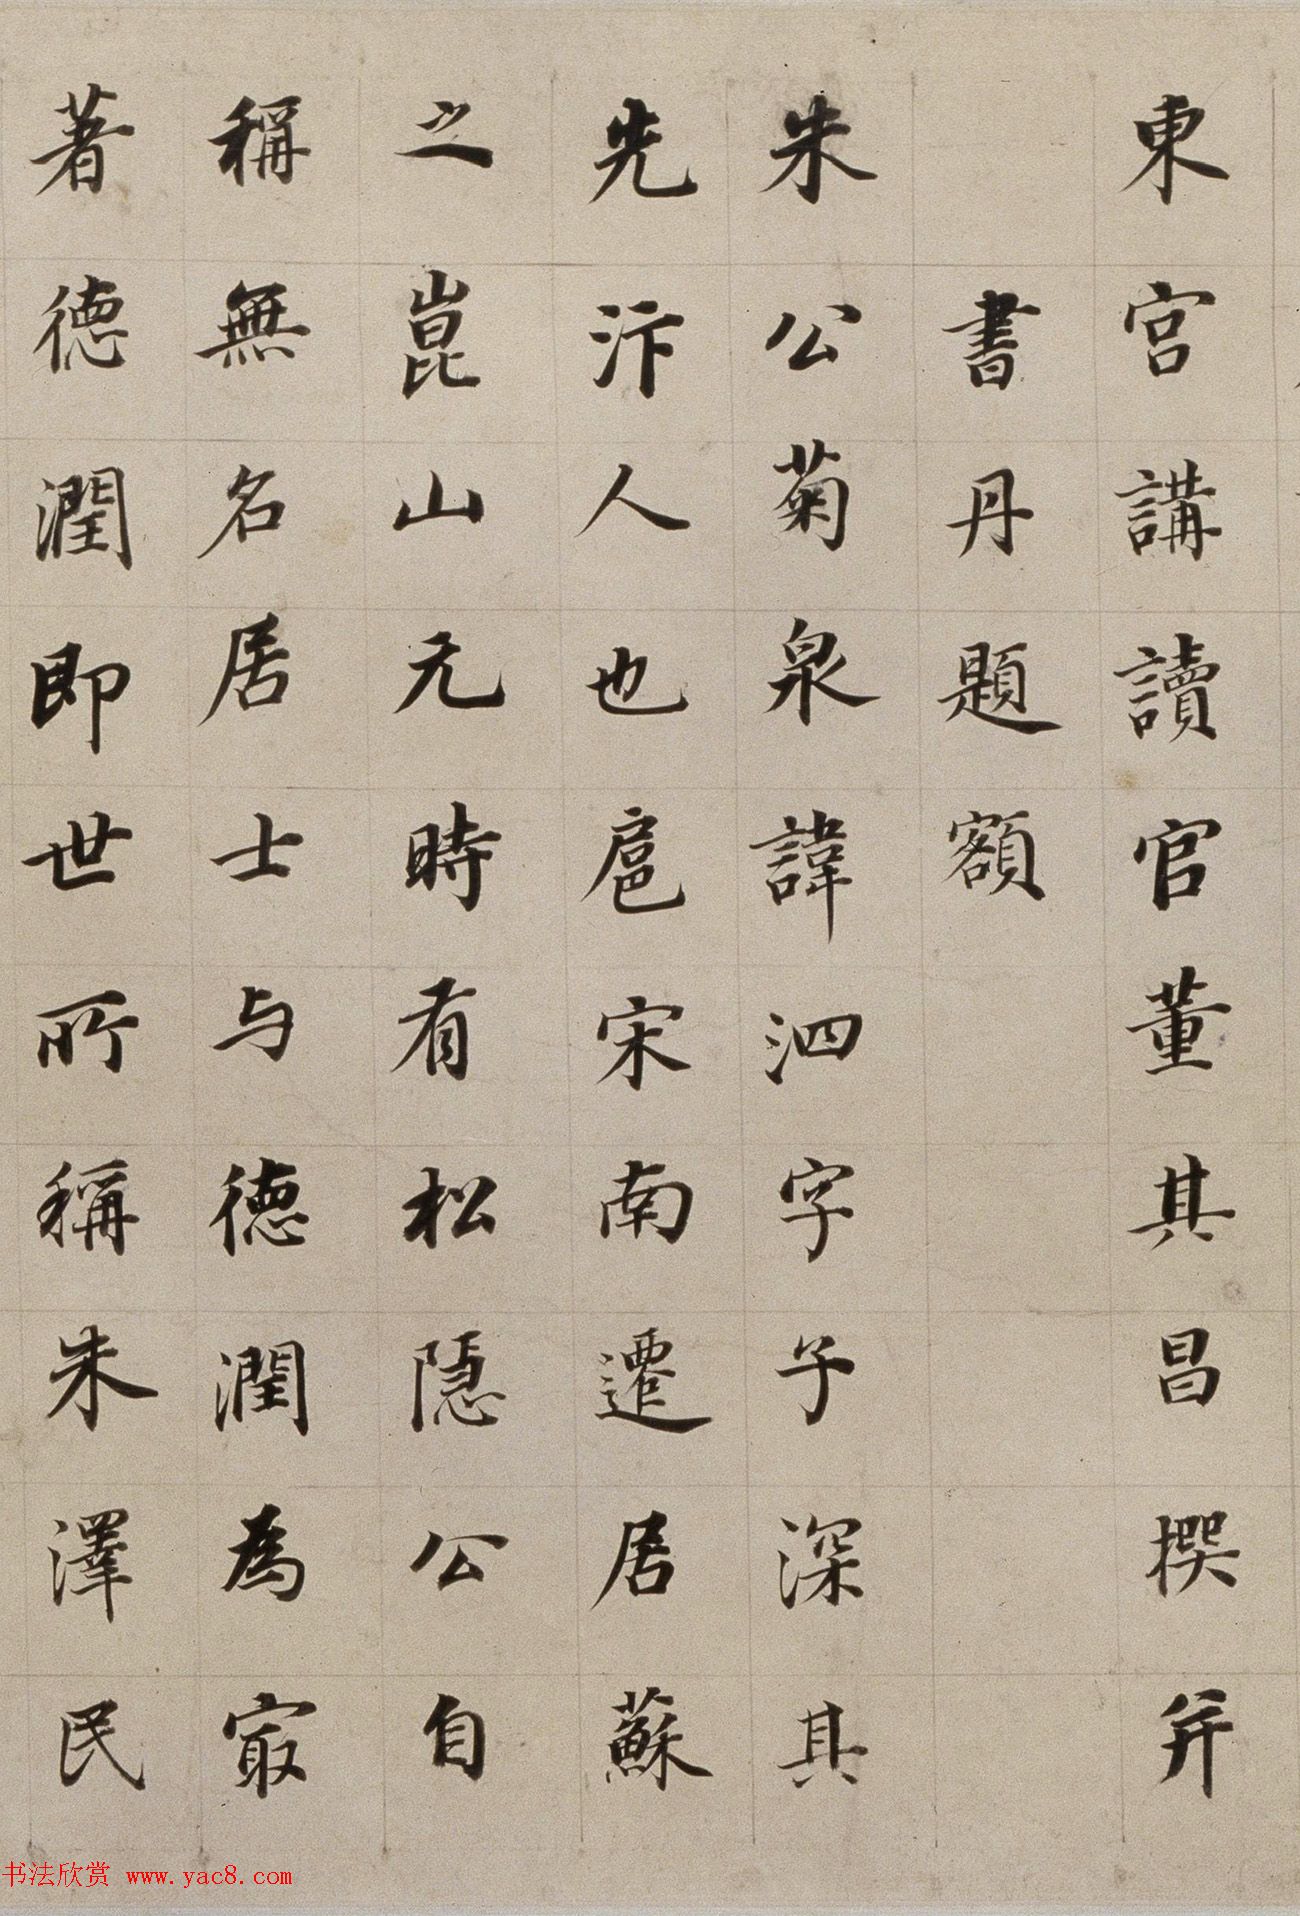 東宮講讀官董其昌撰并
書丹題額
朱公菊泉諱泗字子深其
先汴人也扈宋南遷居蘇
之崑山元時有松隱公自
稱無名居士与德潤為㝡
著德潤即世所稱朱澤民
书法欣赏 www.yac8.com